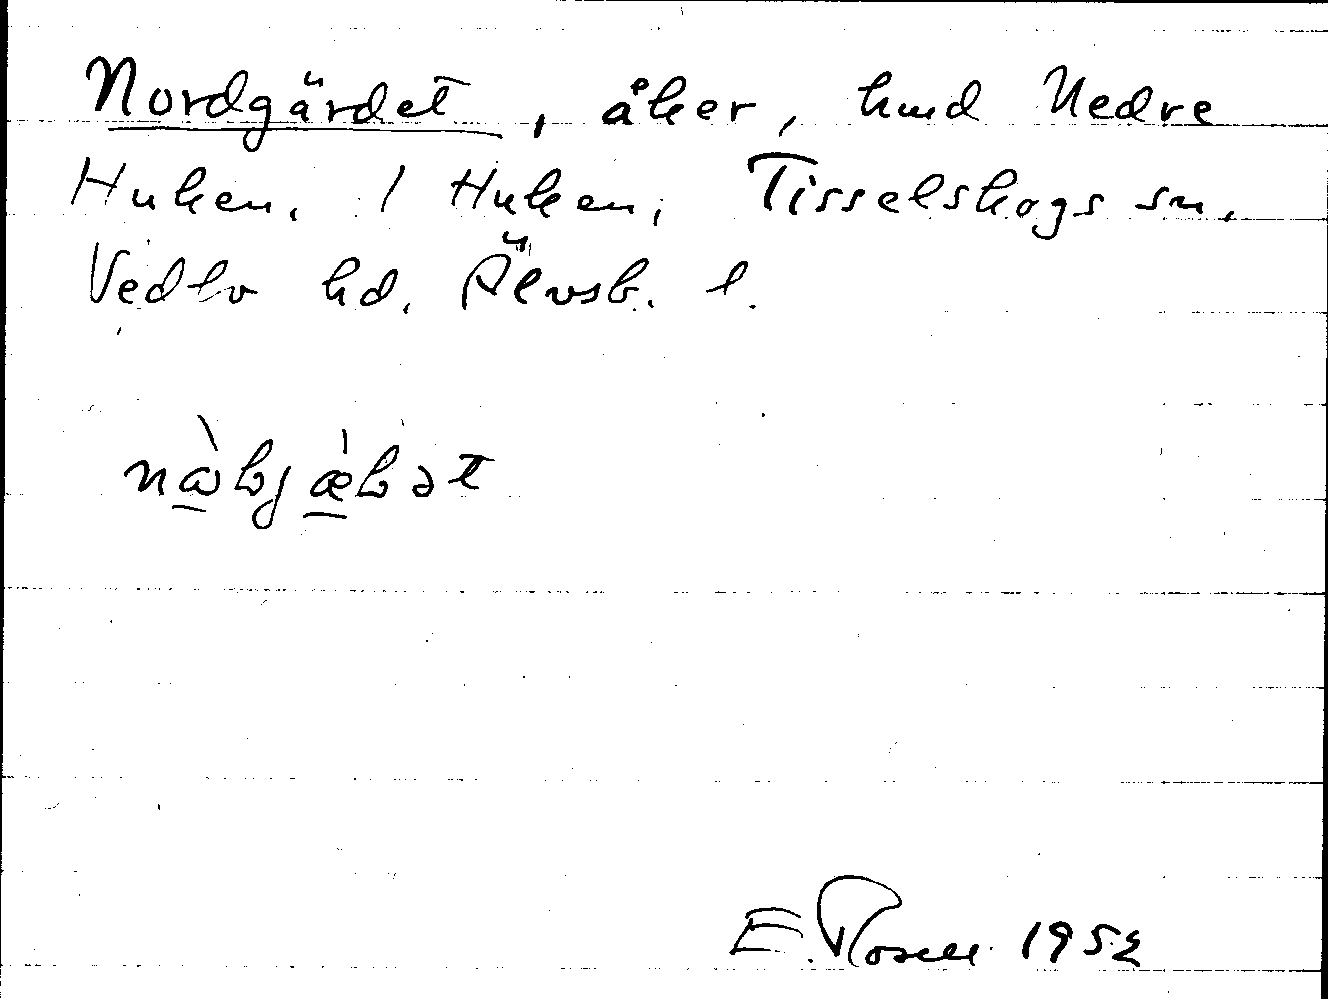 Nordgärdet, åker, hmd Nedre
Huken. 1 Huken, Tisselskogs sn.
Vedbo hd. Älvsb. l.
E. Rosell 1952